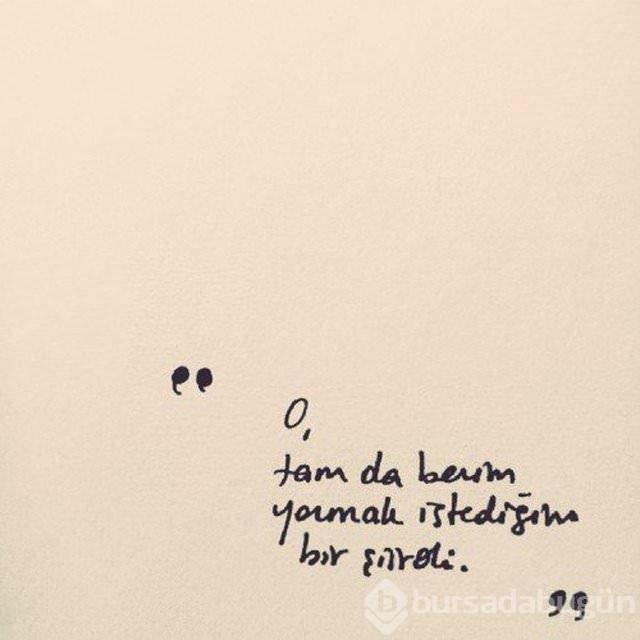 "
O,
tam da benim
yazmak istediğim
bir şiirdi.
"
bursadabugün